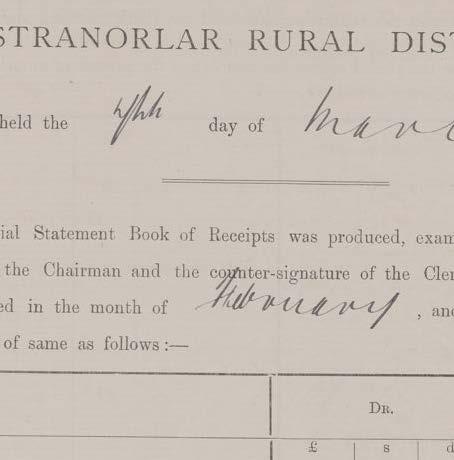 STRANORLAR RURAL DIST
held the day of Marc
ial Statement Book of Receipts was produced, exam
the Chairman and the counter-signature of the Cler
ed in the month of February , and
of same as follows :—
Dr.
£ s d